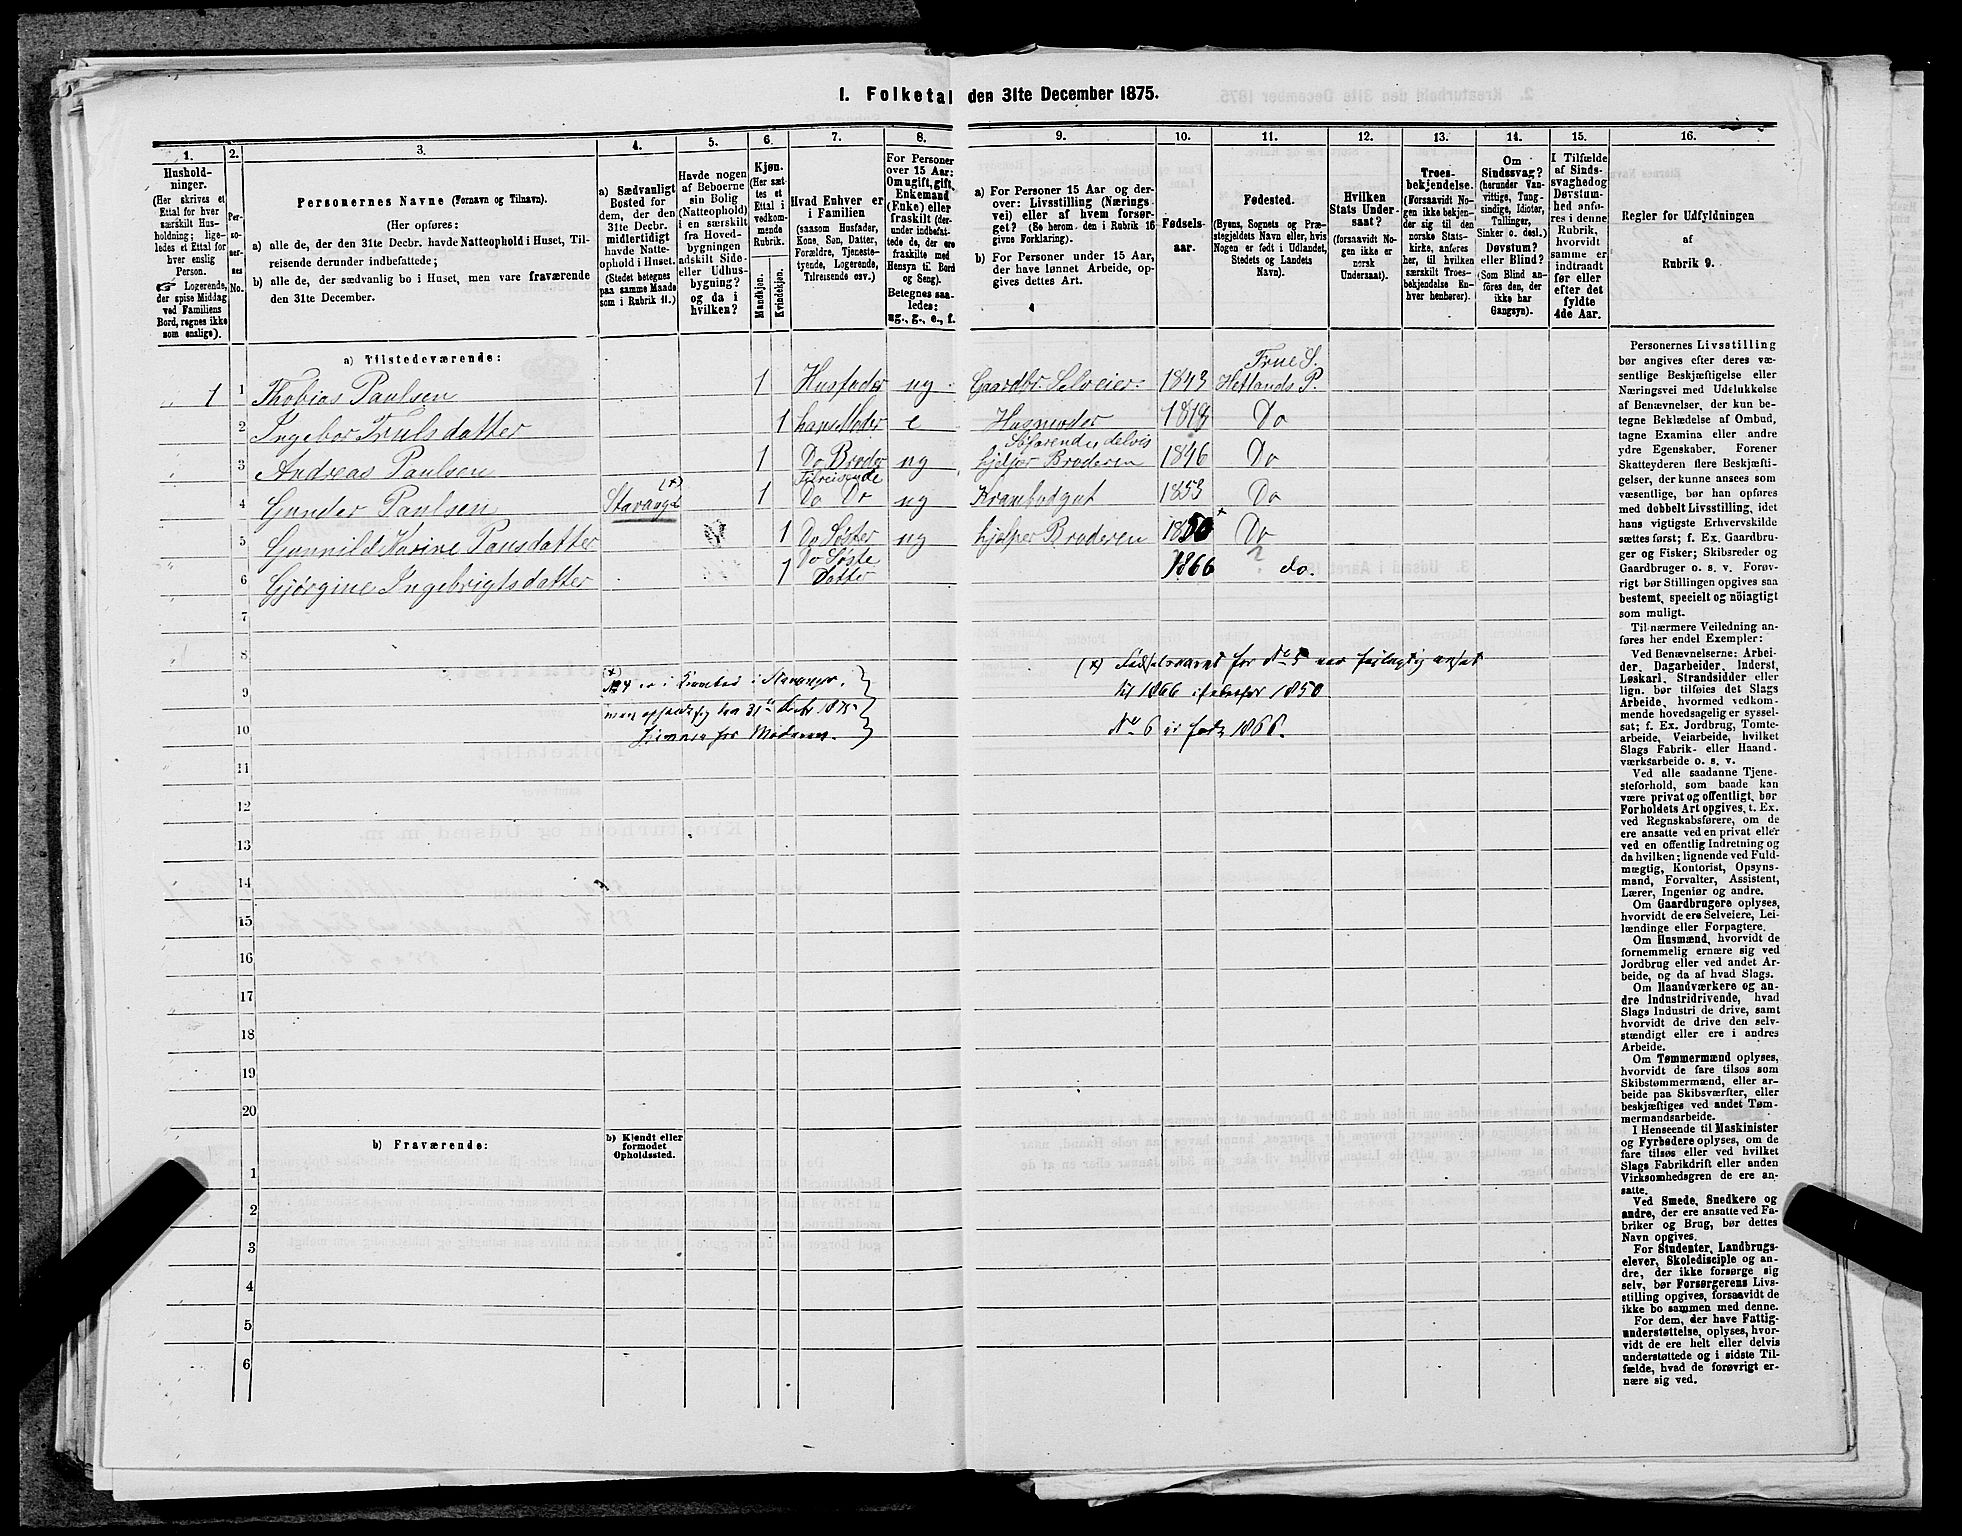 1. Folketal den 31te December 1875.
1.
2.
3.
4.
5.
6.
7.
8.
9.
10.
11.
12.
13.
14.
15.
16.
Hushold-
ninger.
(Her skrives et
Ettal for hver
særskilt Hus-
holdning; lige-
ledes et Ettal for
hver enslig
Person.
☞ Logerende,
der spise Middag
ved Familiens
Bord, regnes ikke
som enslige).
Per-
so-
ner-
nes
No.
Personernes Navne (Fornavn og Tilnavn).
(Her opføres:
a) alle de, der den 31te Decbr. havde Natteophold i Huset, Til-
reisende derunder indbefattede;
b) alle de, der sædvanlig bo i Huset, men vare fraværende
den 31te December.
a) Sædvanligt
Bosted for
dem, der den
31te Decbr.
midlertidigt
havde Natte-
ophold i Huset.
(Stedet betegnes
paa samme Maade
som i Rubrik 11.)
Havde nogen
af Beboerne
sin Bolig
(Natteophold)
i en særskilt
fra Hoved-
bygningen
adskilt Side-
eller Udhus-
bygning?
og da i
hvilken?
Kjøn.
(Her sæt-
tes et
Ettal i
vedkom-
mende
Rubrik.
Mandkjøn.
Kvindekjøn.
Hvad Enhver er
i Familien
(saasom Husfader,
Kone, Søn, Datter,
Forældre, Tjeneste-
tyende, Logerende,
Tilreisende osv.)
For Personer
over 15 Aar:
Om ugift, gift,
Enkemand
(Enke) eller
fraskilt (der-
under indbefat-
tede de, der ere
fraskilte med
Hensyn til Bord
og Seng).
Betegnes saa-
ledes:
ug., g., e., f.
a) For Personer 15 Aar og der-
over: Livsstilling (Nærings-
vei) eller af hvem forsør-
get? (Se herom den i Rubrik 16
givne Forklaring).
b) For Personer under 15 Aar,
der have lønnet Arbeide, op-
gives dettes Art.
Fødsels-
aar.
Fødested.
(Byens, Sognets og Præ-
stegjeldets Navn eller, hvis
Nogen er født i Udlandet,
Stedets og Landets
Navn).
Hvilken
Stats Under-
saat?
(forsaavidt No-
gen ikke er
norsk
Undersaat).
Troes-
bekjendelse.
(Forsaavidt No-
gen ikke bekjen-
der sig til den
norske Stats-
kirke, anføres
her, til hvilken
særskilt Troes-
bekjendelse En-
hver henhører).
Om
Sindssvag?
(herunder Van-
vittige, Tung-
sindige, Idioter,
Tullinger,
Sinker o. desl.)
Døvstum?
eller Blind?
(Som Blind an-
føres den, der
ikke har
Gangsyn).
I Tilfælde
af Sinds-
svaghed og
Døvstum-
hed anfø-
res i denne
Rubrik,
hvorvidt
samme er
indtraadt
før eller
efter det
fyldte
4de Aar.
Regler for Udfyldningen
af
Rubrik 9.
a) Tilstedeværende:
1 1 Thobias Paulsen 1 Husfader ug Gaardbr. Selveier 1843 Frue S. Hetlands P.
2 Ingebor Trulsdatter 1 hans Moder e 1818 Do
3 Andreas Paulsen 1 Do Broder ug hjelper Broderen 1846 Do
4 Gunder Paulsen Stavanger (x) 1 Tilreisende Do Do ug Krambodgut 1853 Do
5 Gunnild Karine Pausdatter 1 Do Søster ug hjelper Broderen 1850 x Do
6 Gjørgine Ingebrigtsdatter 1 Do Søste Datter 1866 ? do.
7
8
9
10
11
12
13
14
15
16
17
18
19
20
(x)
No 4 er i Krambod i Stavanger,
men opholdt sig den 31te Decbr 1875
hjemme hos Moderen.
(x) Fødselsaaret for No 5 var feilagtig ansat
til 1866 istedetfor 1850
No 6 er født 1866.
b) Fraværende:
b) Kjendt eller
formodet
Opholdssted.
1
2
3
4
5
6
Personernes Livsstilling
bør angives efter deres væ-
sentlige Beskjæftigelse eller
Næringsvei med Udelukkelse
af Benævnelser, der kun be-
tegne Beklædelse af Ombud,
tagne Examina eller andre
ydre Egenskaber. Forener
Skatteyderen flere Beskjæfti-
gelser, der kunne ansees som
væsentlige, bør han opføres
med dobbelt Livsstilling, idet
hans vigtigste Erhvervskilde
sættes først; f. Ex. Gaardbru-
ger og Fisker; Skibsreder og
Gaardbruger o. s. v. Forøv-
rigt bør Stillingen opgives saa
bestemt, specielt og nöiagtigt
som muligt.
Til nærmere Veiledning an-
føres her endel Exempler:
Ved Benævnelserne: Arbei-
der, Dagarbeider, Inderst,
Løskarl, Strandsidder eller
lign. bør tilføies det Slags
Arbeide, hvormed vedkom-
mende hovedsagelig er syssel-
sat; f. Ex. Jordbrug, Tomte-
arbeide, Veiarbeide, hvilket
Slags Fabrik- eller Haand-
værksarbeide o. s. v.
Ved alle saadanne Tjene-
steforhold, som baade kan
være privat og offentligt, bør
Forholdets Art opgives, t. Ex.
ved Regnskabsførere, om de
ere ansatte ved en privat eller
ved en offentlig Indretning og
da hvilken; lignende ved Fuld-
mægtig, Kontorist, Opsyns-
mand, Forvalter, Assistent,
Lærer, Ingeniør og andre.
Om Gaardbrugere oplyses,
hvorvidt de ere Selveiere, Lei-
lændinge eller Forpagtere.
Om Husmænd, hvorvidt de
fornemmelig ernære sig ved
Jordbrug eller ved andet Ar-
beide, og da af hvad Slags.
Om Haandværkere og an-
dre Industridrivende, hvad
Slags Industri de drive, samt
hvorvidt de drive den selv-
stændigt eller ere i andres
Arbeide.
Om Tømmermænd oplyses,
hvorvidt de fare tilsøs som
Skibstømmermænd, eller ar-
beide paa Skibsværfter, eller
beskjæftiges ved andet Tøm-
mermandsarbeide.
I Henseende til Maskinister
og Fyrbødere oplyses, om de
fare tilsøs eller ved hvilket
Slags Fabrikdrift eller anden
Virksomhedsgren de ere an-
satte.
Ved Smede, Snedkere og
andre, der ere ansatte ved Fa-
briker og Brug, bør dettes
Navn opgives.
For Studenter, Landbrugs-
elever, Skoledisciple og an-
dre, der ikke forsørge sig
selv, bør Forsørgerens Livs-
stilling opgives, forsaavidt de
ikke bo sammen med denne.
For dem, der have Fattig-
understøttelse, oplyses, hvor-
vidt de ere helt eller delvis
understøttede og i sidste Til-
fælde, hvad de forøvrigt er-
nære sig ved.